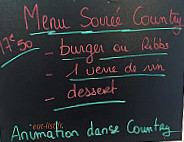 Menu Soirée Country
17€50
- burger ou Ribbs
- 1 verre de vin
- dessert
Animation danse Country